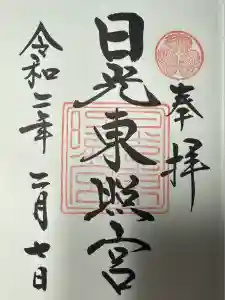 奉拝
日光東照宮
令和二年 二月七日